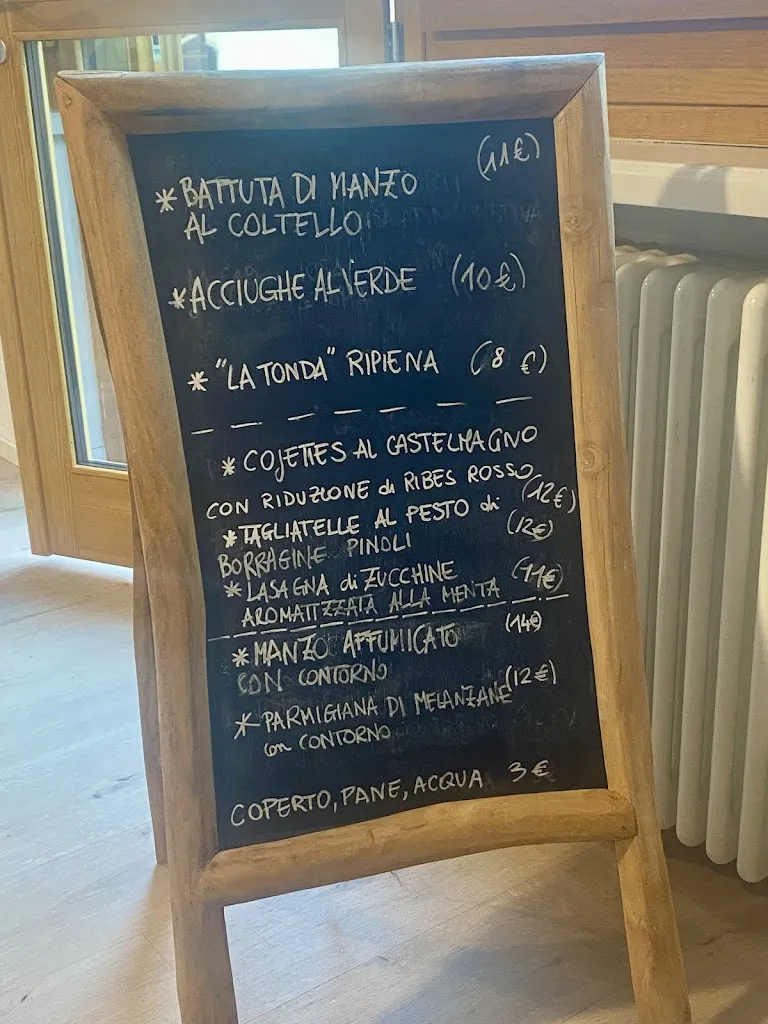 * BATTUTA DI MANZO (11€)
AL COLTELLO
* ACCIUGHE AL VERDE (10€)
* "LA TONDA" RIPIENA (8 €)
* COJETTES AL CASTELMAGNO
CON RIDUZIONE di RIBES ROSSO (12€)
* TAGLIATELLE AL PESTO di (12€)
BORRAGINE PINOLI
* LASAGNA di ZUCCHINE (11€)
AROMATIZZATA ALLA MENTA
* MANZO AFFUMICATO (14€)
CON CONTORNO
* PARMIGIANA DI MELANZANE (12€)
con CONTORNO
COPERTO, PANE, ACQUA 3€